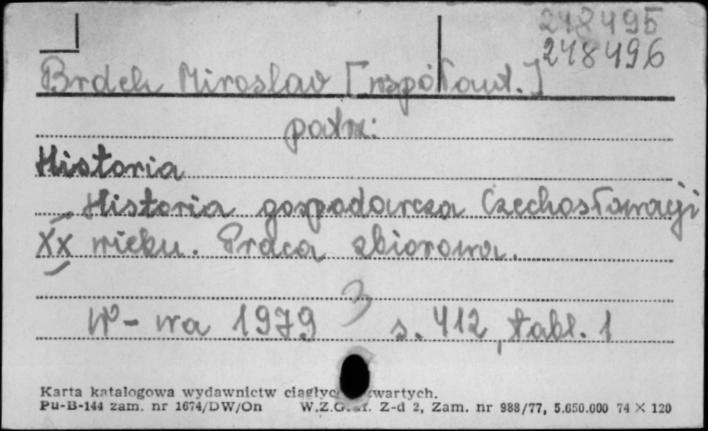 248495
248496
Brdek Miroslav [współaut.]
patrz:
Historia
Historia gospodarcza Czechosłowacji
XX wieku. Praca zbiorowa.
3
W-wa 1979 s. 412, tabl. 1
Karta katalogowa wydawnictw
Pu-B-144 zam. nr 1674/DW/On Z-d 2, Zam. nr 988/77, 5.650.000 74 × 120